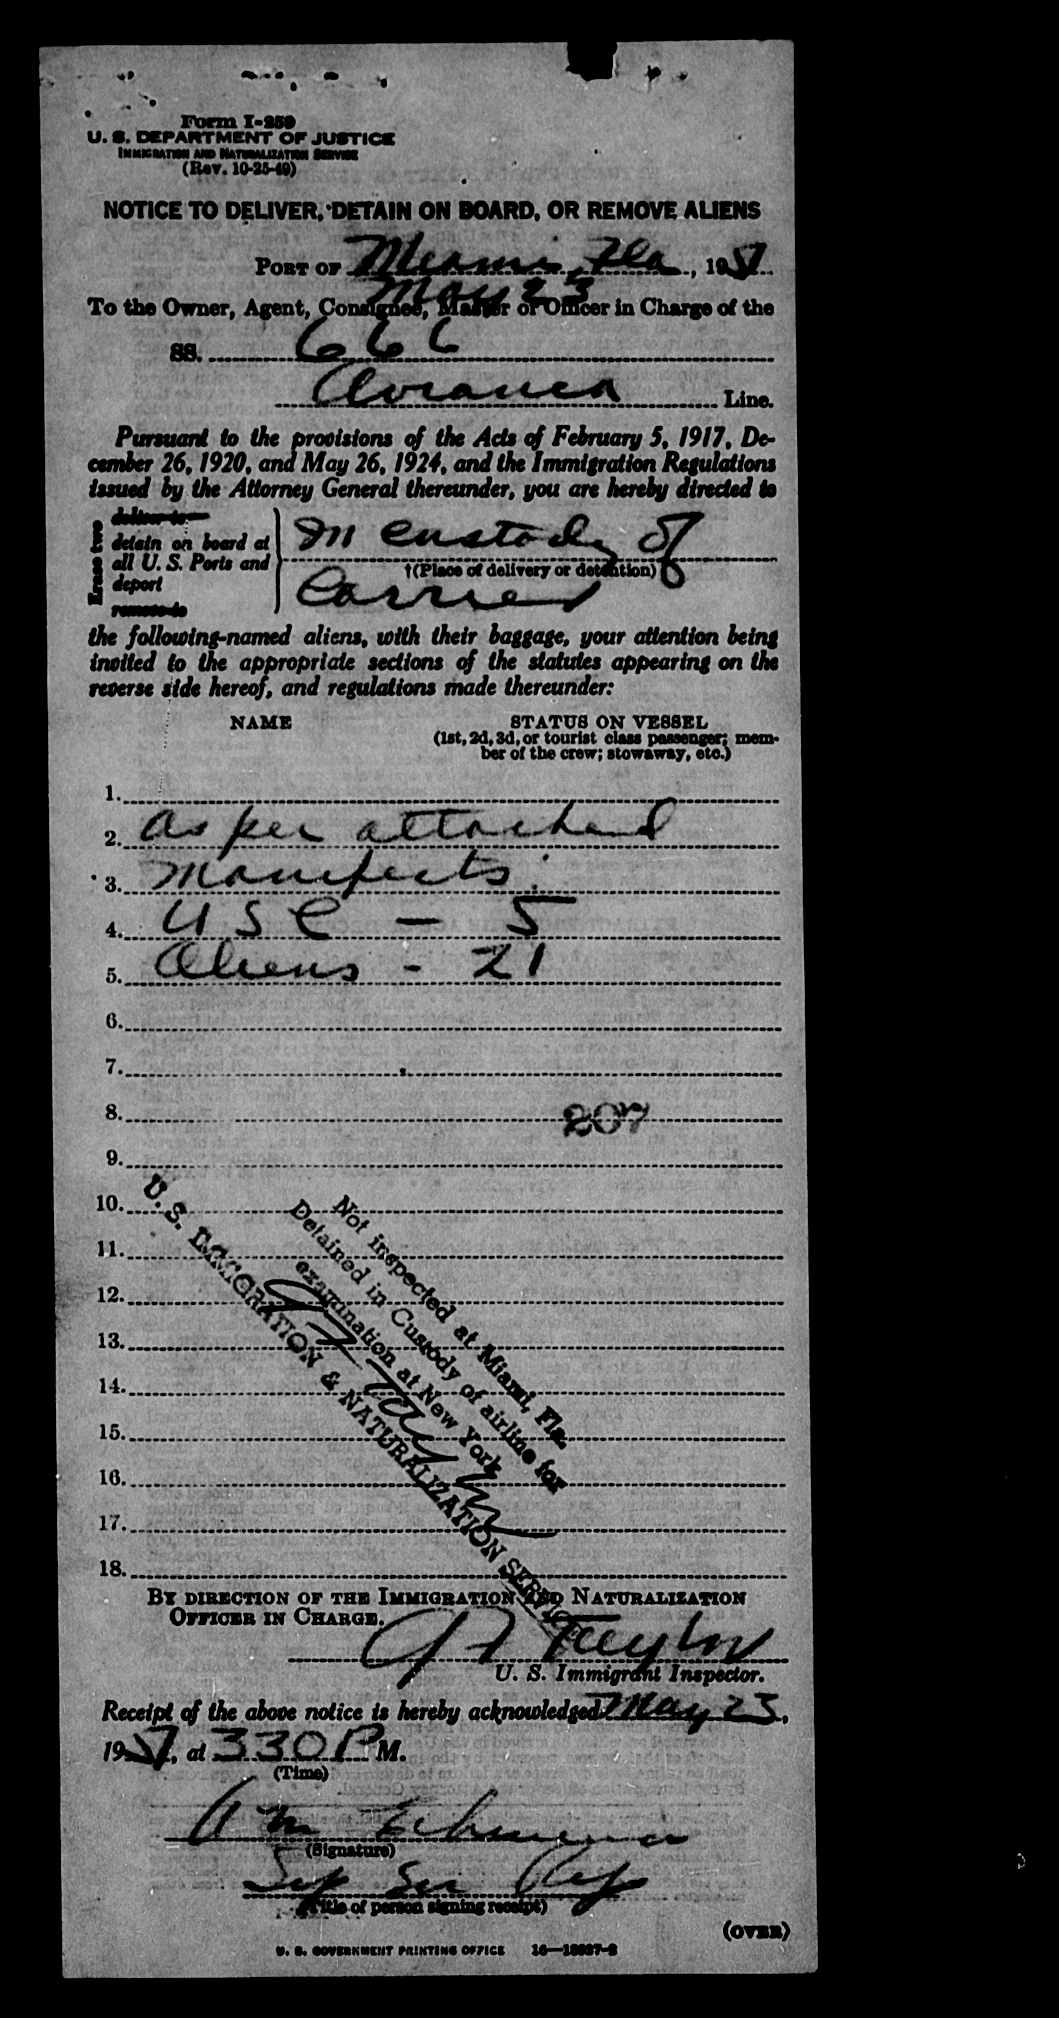 Form I-259
U. S. DEPARTMENT OF JUSTICE
IMMIGRATION AND NATURALIZATION SERVICE
(Rev. 10-25-49)
NOTICE TO DELIVER, DETAIN ON BOARD, OR REMOVE ALIENS
PORT OF Miami, Fla, 1957
May 23
To the Owner, Agent, Consignee, Master or Officer in Charge of the
SS. 666
Avianca Line.
Pursuant to the provisions of the Acts of February 5, 1917, De-
cember 26, 1920, and May 26, 1924, and the Immigration Regulations
issued by the Attorney General thereunder, you are hereby directed to
Erase two
deliver to
detain on board at
all U. S. Ports and
deport
remove to
In custody of
†(Place of delivery or detention)
Carrier
the following-named aliens, with their baggage, your attention being
invited to the appropriate sections of the statutes appearing on the
reverse side hereof, and regulations made thereunder:
NAME
STATUS ON VESSEL
(1st, 2d, 3d, or tourist class passenger; mem-
ber of the crew; stowaway, etc.)
1.
2. As per attached
3. Manifests:
4. USC - 5
5. Aliens - 21
6.
7.
8. 207
9.
10.
11.
12.
13.
14.
15.
16.
17.
18.
Not inspected at Miami, Fla.
Detained in Custody of airline for
examination at New York
U. S. IMMIGRATION & NATURALIZATION SERVICE
BY DIRECTION OF THE IMMIGRATION AND NATURALIZATION
OFFICER IN CHARGE.
Taylor
U. S. Immigrant Inspector.
Receipt of the above notice is hereby acknowledged May 23,
1957, at 330 P M.
(Time)
(Signature)
Rep
(Title of person signing receipt)
(OVER)
U. S. GOVERNMENT PRINTING OFFICE 16—18987-2